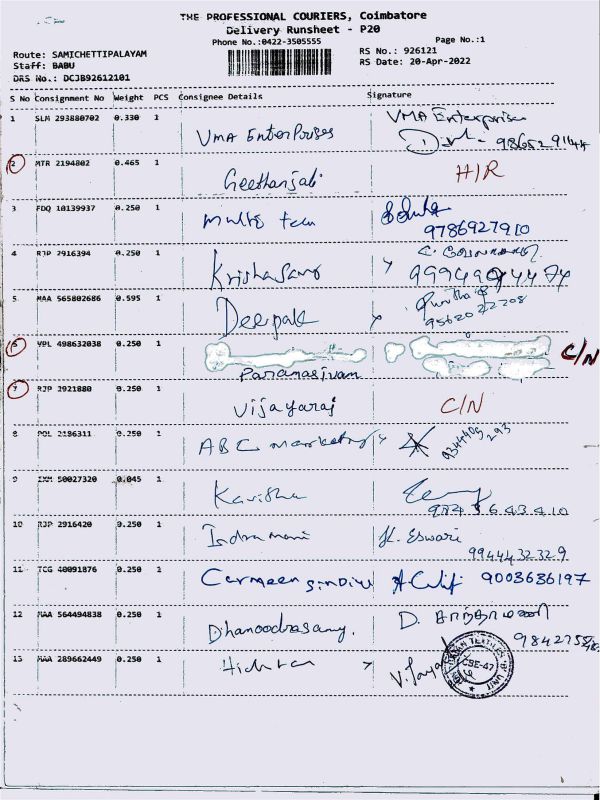 THE PROFESSIONAL COURIERS, Coimbatore
Delivery Runsheet - P20
Phone No.:0422-3505555
Page No.:1
Route: SAMICHETTIPALAYAM
RS No.: 926121
Staff: BABU
RS Date: 20-Apr-2022
DRS No.: DCJB92612101
S No Consignment No Weight PCS Consignee Details Signature
1 SLM 293880702 0.330 1 VMA Enterprises VMA Enterprises
9865291144
2 MTR 2194802 0.465 1 Geethanjali H/R
3 FDQ 10139937 0.250 1
9786927910
4 RJP 2916394 0.250 1
5 MAA 565802686 0.595 1 Deepak
9562022208
6 VPL 498632038 0.250 1 C/N
Paramasivam
7 RJP 2921880 0.250 1 Vijayaraj C/N
8 POL 2196311 0.250 1 ABC marketing
9344405293
9 IXM 50027320 0.045 1 Kavitha
10 RJP 2916420 0.250 1 Indramani K. Eswari
9944432329
11 TCG 40091876 0.250 1
9003636197
12 MAA 564494838 0.250 1 D. சாந்தாமணி
13 MAA 289662449 0.250 1
CBE-47